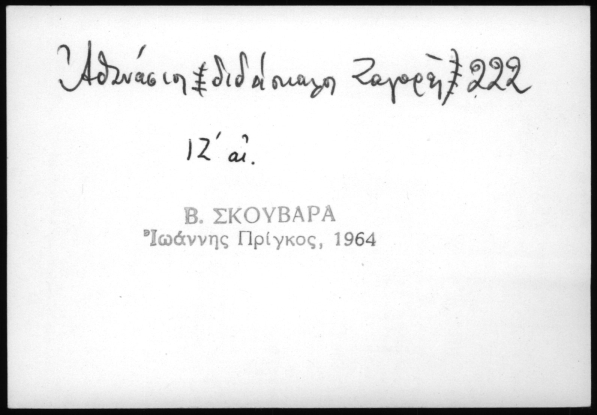 Ἀθανάσιος διδάσκαλος Ζαγορᾶς 222
ΙΖ´ αἰ.
Β. ΣΚΟΥΒΑΡΑ
Ἰωάννης Πρίγκος, 1964